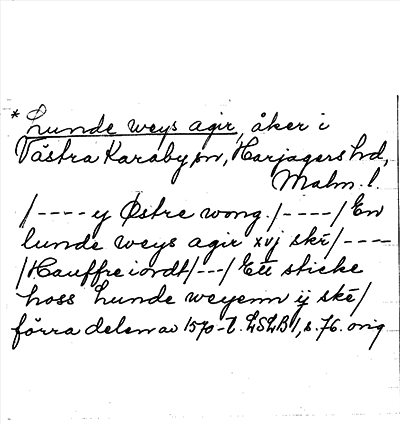 * Lunde weys agir, åker i
Västra Karaby sn, Harjagers hd,
Malm. l.
/---- y Østre wong. /----/ En
lunde weys agir xvj skē/----
/Hauffre iordt/---/ Ett sticke
hoss Lunde weyenn ij skē/
förra delen av 1570-t. LSLB 1, s. 76. orig